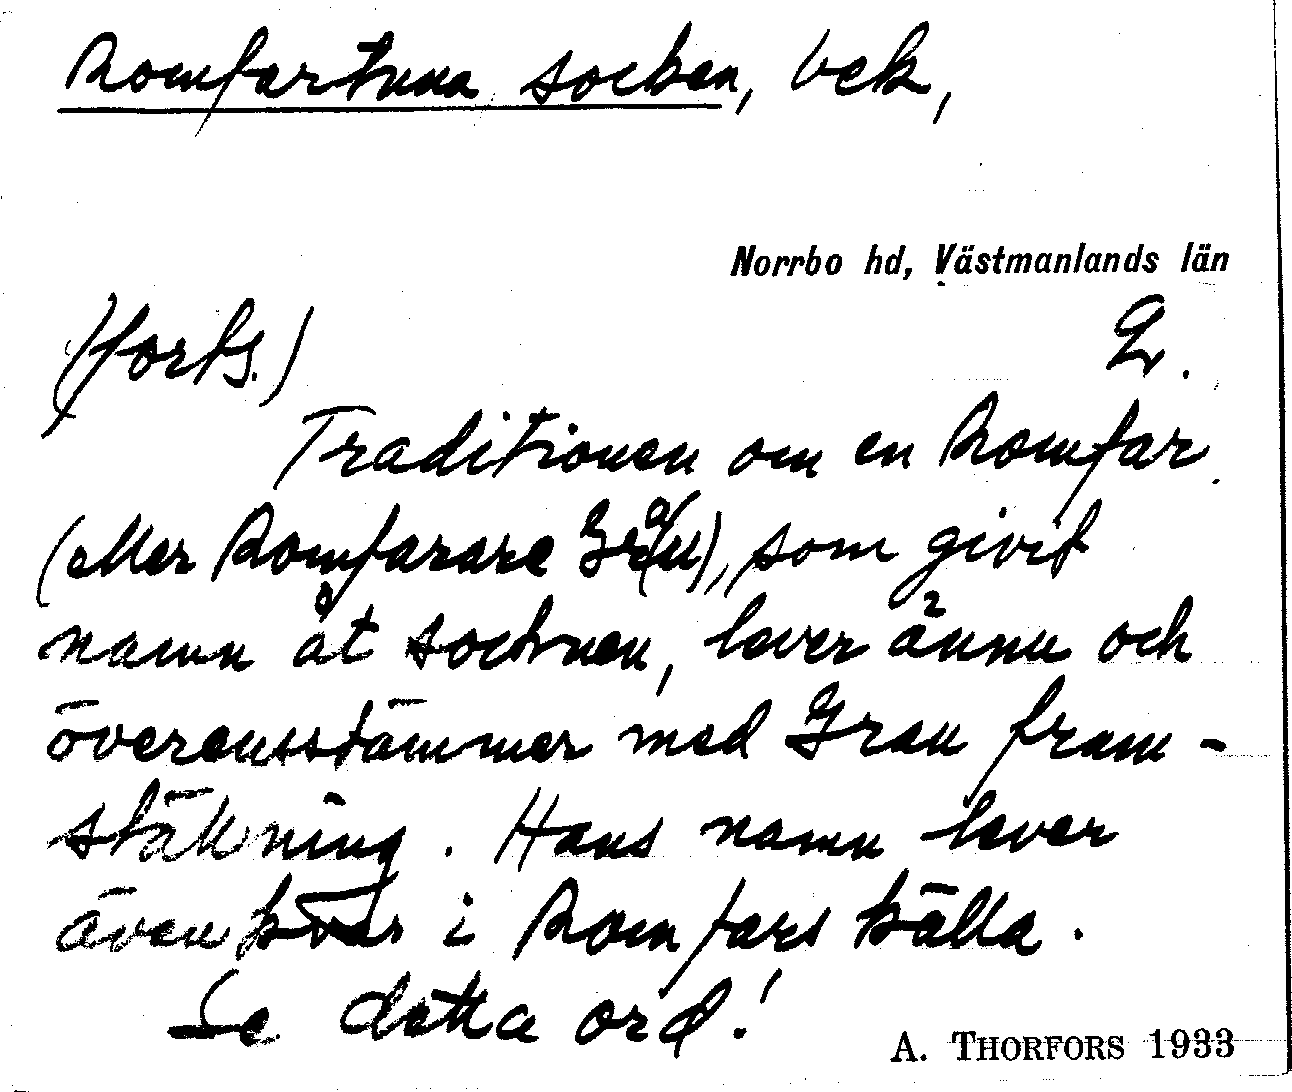 Romfartuna socken, Vck,
Norrbo hd, Västmanlands län
(forts.) 2.
Traditionen om en Romfar
(eller Romfarare Gran), som givit
namn åt socknen, lever ännu och
överensstämmer med Grau fram-
ställning. Hans namn lever
även kvar i Romfars källa.
Se detta ord!
A. THORFORS 1933